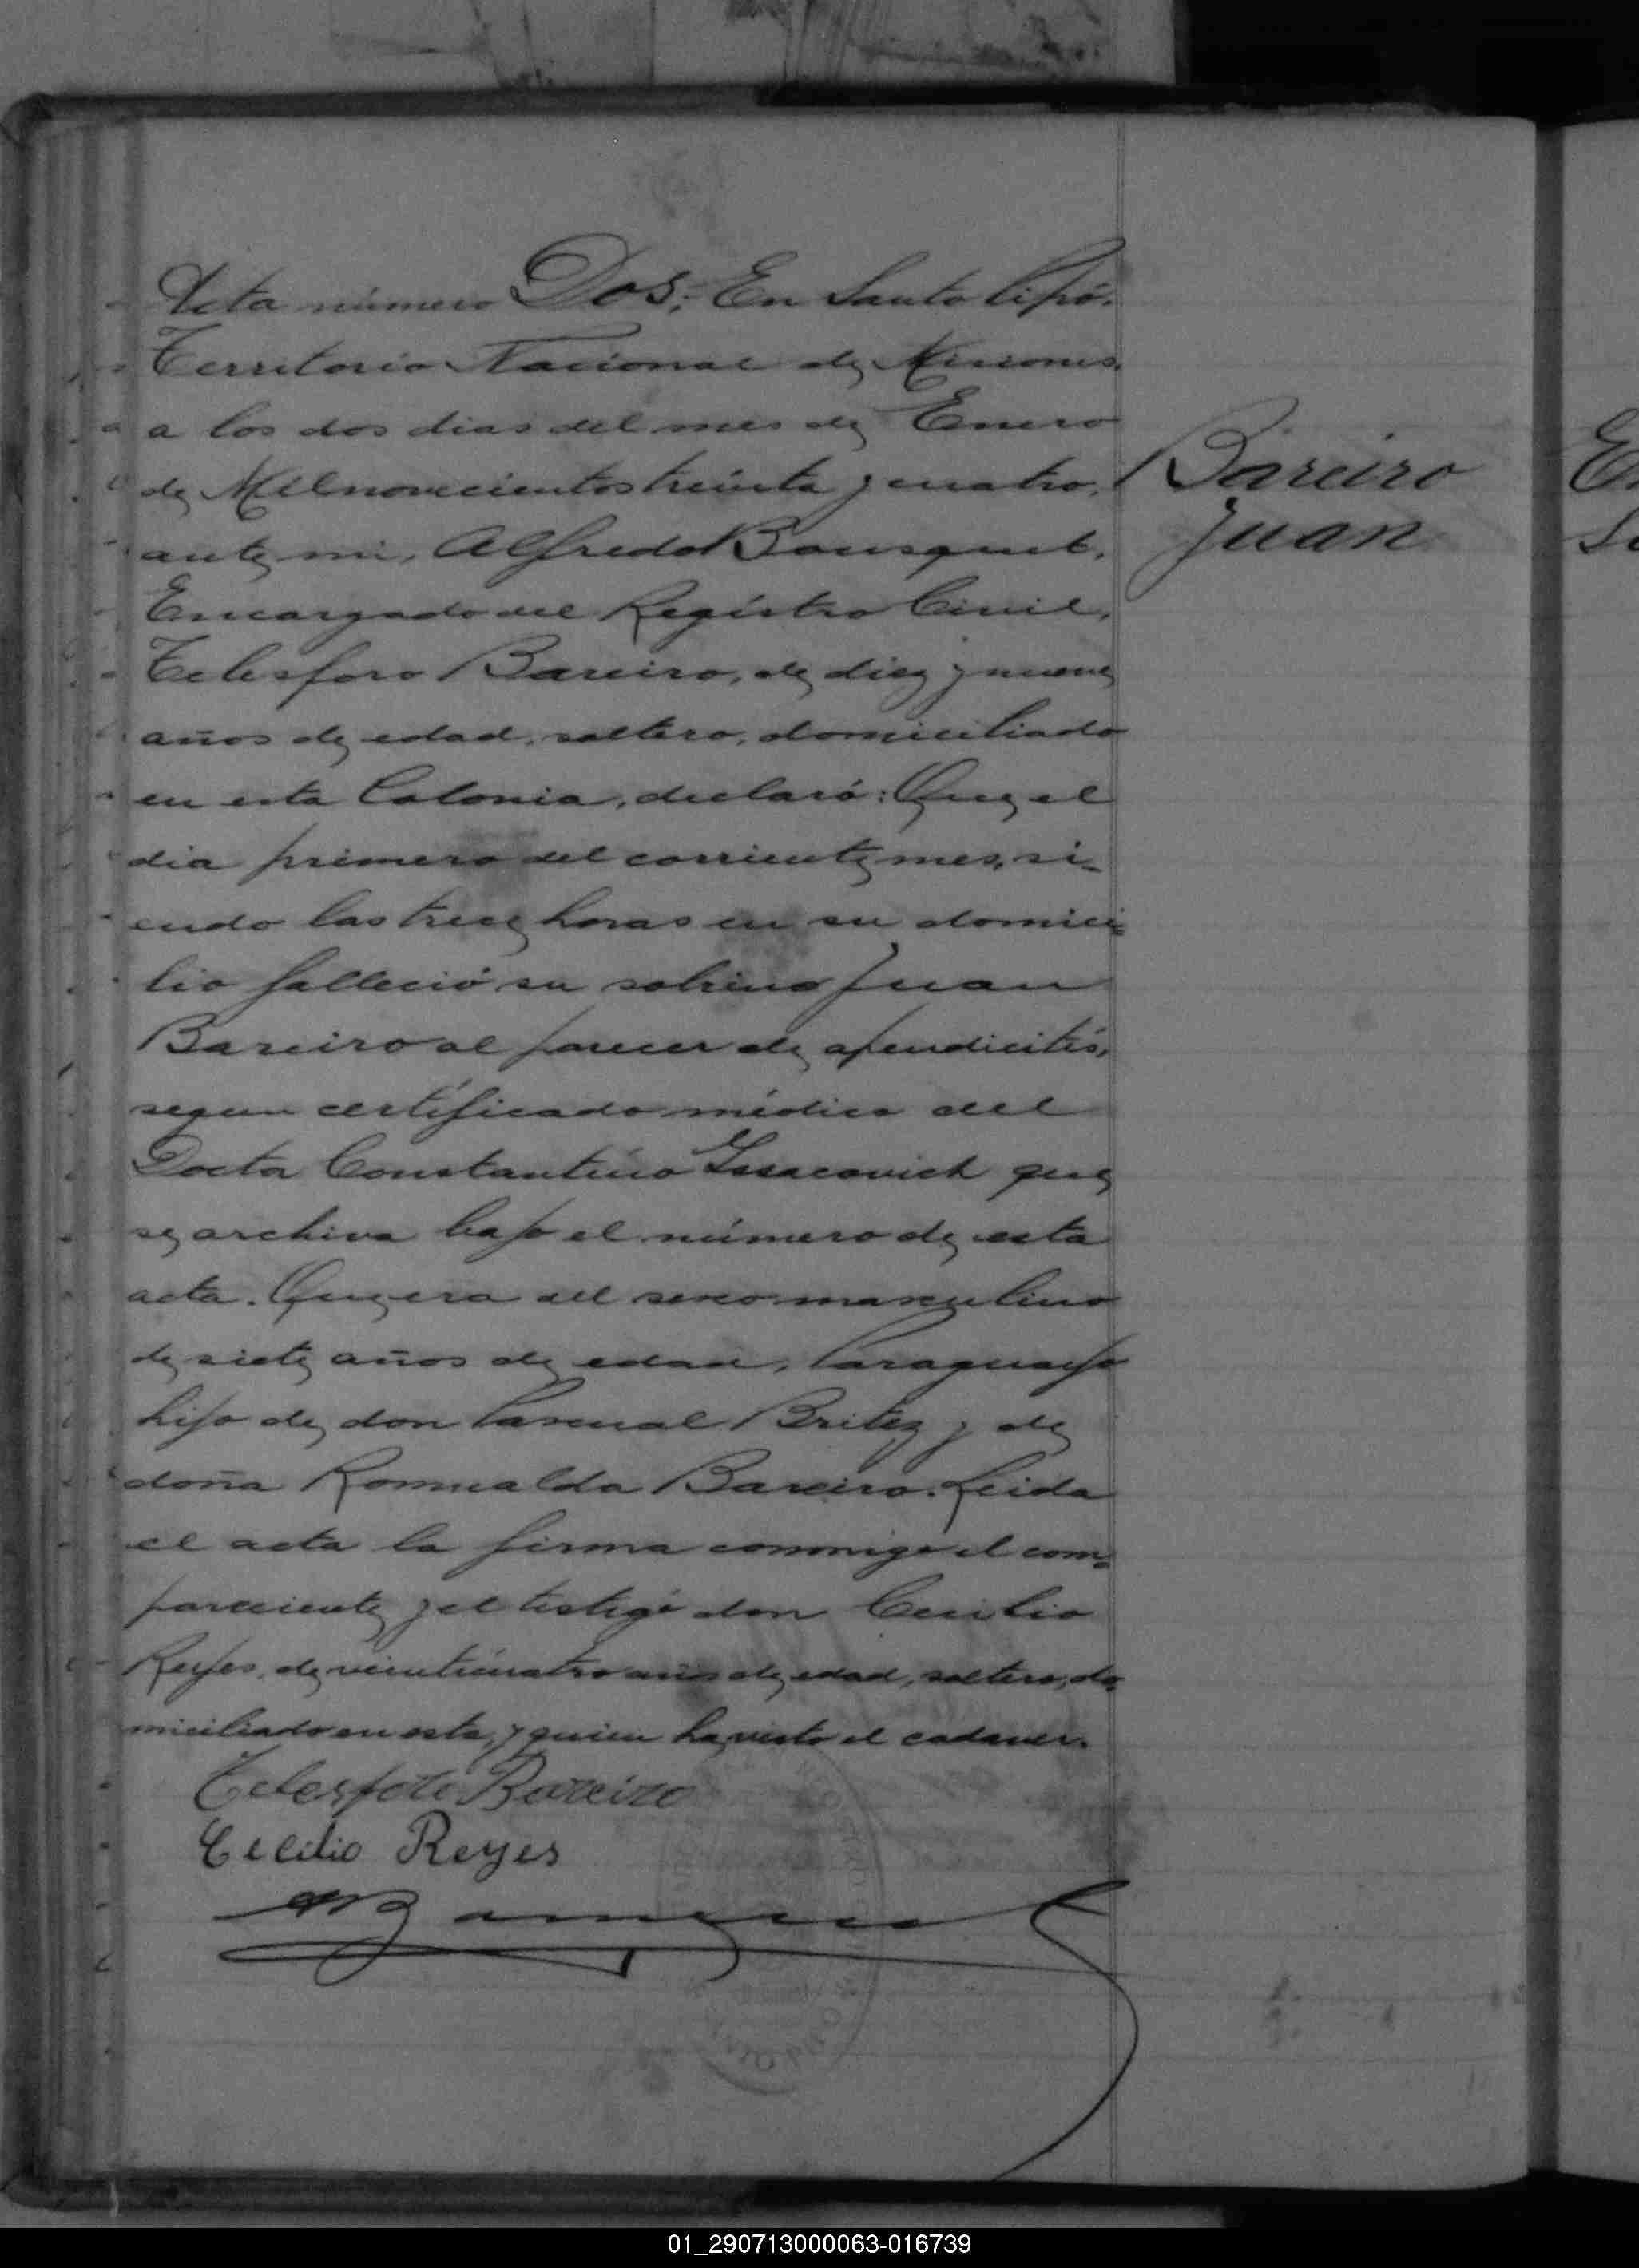 Acta número Dos; En Santo Pipó.
Territorio Nacional de Misiones.
a los dos dias del mes de Enero
de Milnovecientos treinta y cuatro,
ante mi, Alfredo Bousquet,
Encargado del Registro Civil,
Telesforo Bareiro, de diez y nueve
años de edad, soltero, domiciliado
en esta Colonia, declaró: Que el
dia primero del corriente mes, si-
endo las trece horas en su domici-
lio falleció su sobrino Juan
Bareiro al parecer de apendicitis,
segun certificado médico del
Doctor Constantino Issacovich que
se archiva bajo el número de esta
acta. Que era del sexo masculino
de siete años de edad, Paraguayo
hijo de don Pascual Britez y de
doña Romualda Bareiro. Leida
el acta la firma conmigo el com-
pareciente y el testigo don Cecilio
Reyes, de veinticuatro años de edad, soltero, do-
miciliado en esta, y quien ha visto el cadaver.
Telesforo Bareiro
Cecilio Reyes
ABousquet
Bareiro
Juan
01_290713000063-016739